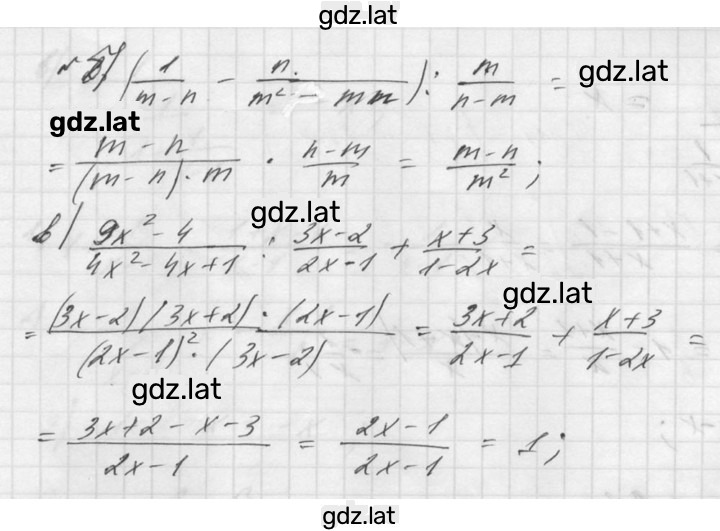 gdz.lat
б) (1/(m-n) - n/(m² - mn)) : m/(n-m) = gdz.lat
gdz.lat
= (m-n)/((m-n)·m) · (n-m)/m = (m-n)/m²;
gdz.lat
в) (9x²-4)/(4x²-4x+1) : (3x-2)/(2x-1) + (x+3)/(1-2x) =
gdz.lat
= ((3x-2)(3x+2)·(2x-1))/((2x-1)²·(3x-2)) = (3x+2)/(2x-1) + (x+3)/(1-2x) =
gdz.lat
= (3x+2-x-3)/(2x-1) = (2x-1)/(2x-1) = 1;
gdz.lat